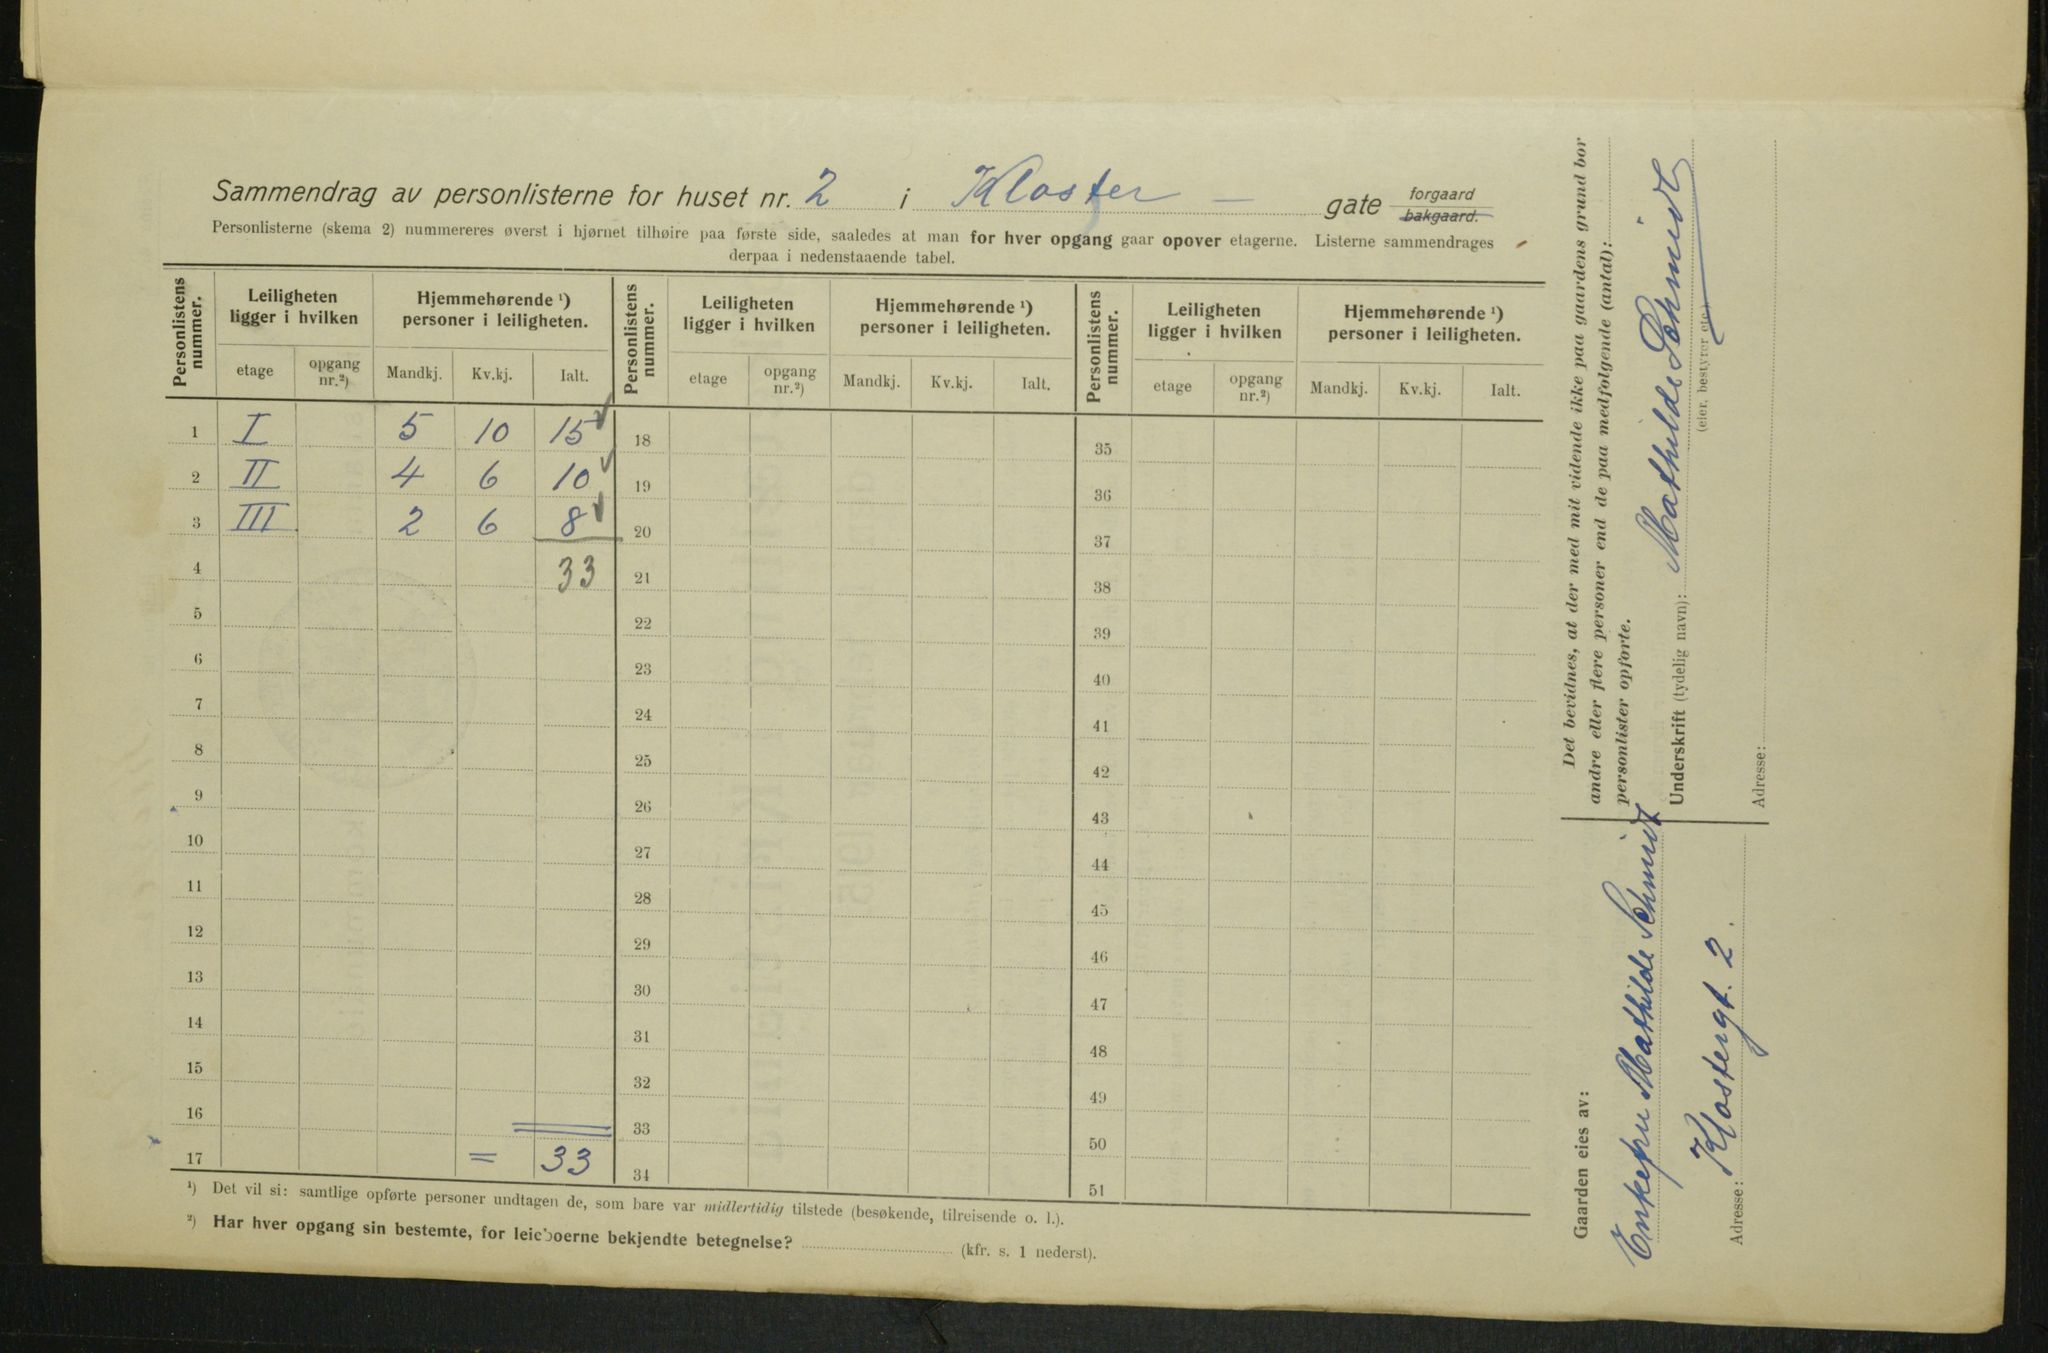 Sammendrag av personlisterne for huset nr. 2 i Kloster - gate forgaard bakgaard.
Personlisterne (skema 2) nummereres øverst i hjørnet tilhøire paa første side, saaledes at man for hver opgang gaar opover etagerne. Listerne sammendrages
derpaa i nedenstaaende tabel.
Personlistens nummer. Leiligheten ligger i hvilken Hjemmehørende ¹) personer i leiligheten. Personlistens nummer. Leiligheten ligger i hvilken Hjemmehørende ¹) personer i leiligheten. Personlistens nummer. Leiligheten ligger i hvilken Hjemmehørende ¹) personer i leiligheten.
etage opgang nr.²) Mandkj. Kv.kj. Ialt. etage opgang nr.²) Mandkj. Kv.kj. Ialt. etage opgang nr.²) Mandkj. Kv.kj. Ialt.
1 I 5 10 15 18 35
2 II 4 6 10 19 36
3 III 2 6 8 20 37
4 33 21 38
5 22 39
6 23 40
7 24 41
8 25 42
9 26 43
10 27 44
11 28 45
12 29 46
13 30 47
14 31 48
15 32 49
16 33 50
17 = 33 34 51
¹) Det vil si: samtlige opførte personer undtagen de, som bare var midlertidig tilstede (besøkende, tilreisende o. l.).
²) Har hver opgang sin bestemte, for leieboerne bekjendte betegnelse? (kfr. s. 1 nederst).
Det bevidnes, at der med mit vidende ikke paa gaardens grund bor
andre eller flere personer end de paa medfølgende (antal):
personlister opførte.
Underskrift (tydelig navn): Mathilde Schmidt
(eier, bestyrer etc.)
Adresse:
Gaarden eies av:
Enkefru Mathilde Schmidt
Adresse: Klostergt. 2.